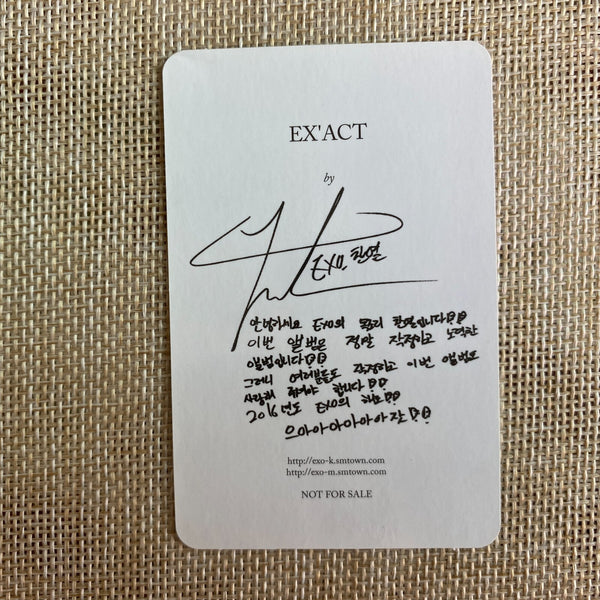 EX'ACT
by
EXO. 찬열
안녕하세요 EXO의 목소리 찬열입니다!!
이번 앨범은 정말 작정하고 노력한
앨범입니다!!
그러니 여러분들도 작정하고 이번 앨범도
사랑해 줘야 합니다!!
2016년도 EXO의 해로!!
으아아아아아아자!!
http://exo-k.smtown.com
http://exo-m.smtown.com
NOT FOR SALE